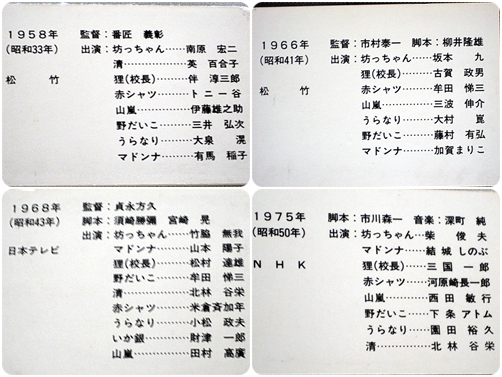 1958年 監督：番匠 義彰
(昭和33年) 出演：坊っちゃん……南原 宏二
清…………英 百合子
松 竹 狸(校長)………伴 淳三郎
赤シャツ………トニー谷
山嵐…………伊藤雄之助
野だいこ………三井 弘次
うらなり………大泉 滉
マドンナ………有馬 稲子
1966年 監督：市村泰一 脚本：柳井隆雄
(昭和41年) 出演：坊っちゃん……坂本 九
狸(校長)………古賀 政男
松 竹 赤シャツ………牟田 悌三
山嵐…………三波 伸介
うらなり………大村 崑
野だいこ………藤村 有弘
マドンナ………加賀まりこ
1968年 監督：貞永方久
(昭和43年) 脚本：須崎勝彌 宮崎 晃
出演：坊っちゃん……竹脇 無我
日本テレビ マドンナ………山本 陽子
狸(校長)………松村 達雄
野だいこ………牟田 悌三
清…………北林 谷栄
赤シャツ………米倉斉加年
うらなり………小松 政夫
いか銀…………財津 一郎
山嵐…………田村 高廣
1975年 脚本：市川森一 音楽：深町 純
(昭和50年) 出演：坊っちゃん……柴 俊夫
マドンナ………結城 しのぶ
NHK 狸(校長)………三国 一郎
赤シャツ………河原崎長一郎
山嵐…………西田 敏行
野だいこ………下条 アトム
うらなり………園田 裕久
清…………北林 谷栄